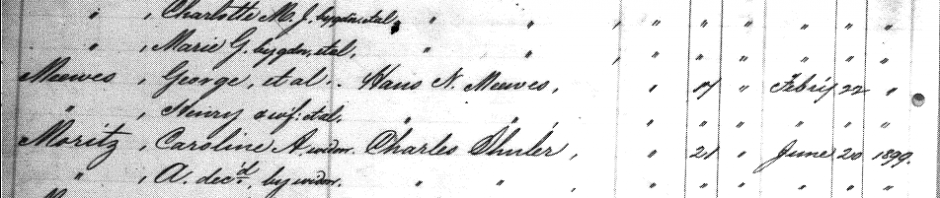 " , Charlotte M. J. by gdn, et al, " " , " " " " " "
" , Marie G. by gdn, et al, " " , " " " " " "
Meewes , George, et al.. Hans N. Meewes, " 17 " Febr'y 22 "
" , Henry & wf: et al. , , , " " " " " "
Moritz , Caroline A. widow. Charles , " 21 " June 20 1899.
" , A. dec'd, by widow. " " , " " " " " "